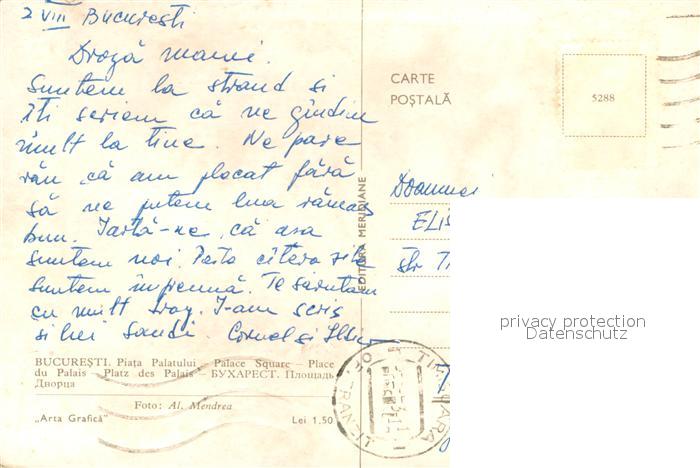 2 VIII București
Dragă mami.
Suntem la strand si
iți scriem că ne gîndim
mult la tine. Ne pare
rău că am plecat fără
să ne putem lua rămas
bun. Iartă-ne, că așa
suntem noi. Peste cîteva zile
suntem împreună. Te sărutăm
cu mult drag. I-am scris
si lui Sandi. Cornel și
BUCUREȘTI. Piața Palatului – Palace Square – Place
du Palais – Platz des Palais – БУХАРЕСТ. Площадь
Дворца
Foto: Al. Mendrea
„Arta Grafică” Lei 1.50
EDITURA MERIDIANE
CARTE
POȘTALĂ
5288
Doamnei
ELIS
str
privacy protection
Datenschutz